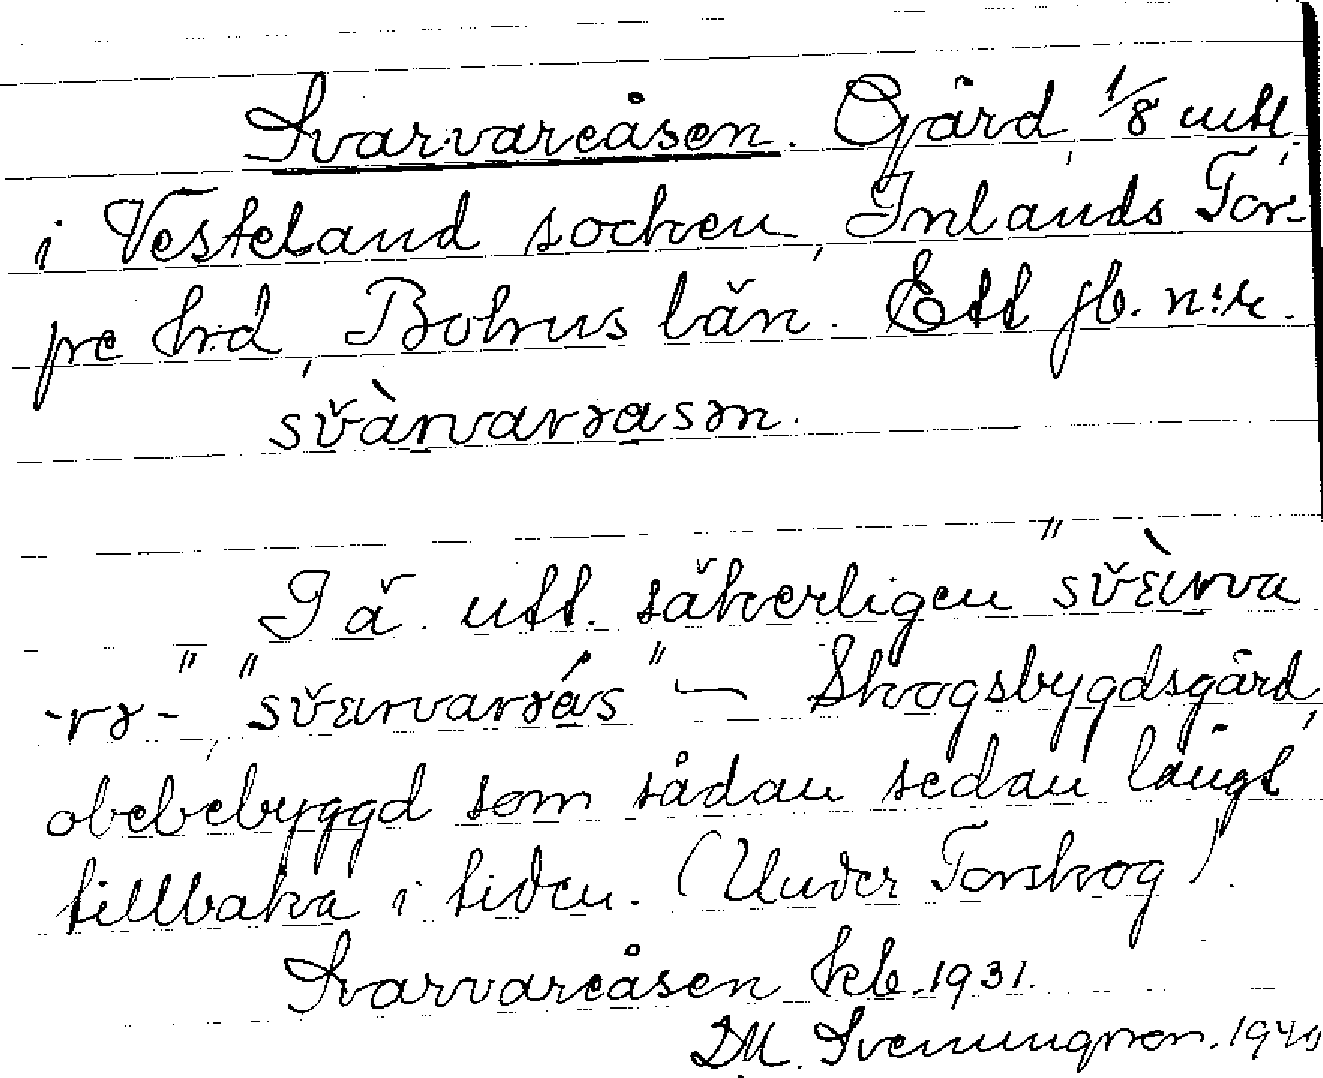 Svarvareåsen. Gård, 1/8 mtl,
i Vesteland socken, Inlands Tor-
pe hrd, Bohus län. Ett jb. n:r.
sv̆àrvarɜasɜn.
I ä. utt. säkerligen "sv̆ɛ̀rva
-rɜ-", "sv̆ɛrvarɜás" — Skogsbygdsgård,
obebebyggd som sådan sedan långt
tillbaka i tiden. (Under Torskog).
Svarvareåsen keb. 1931.
DM. Svenungsson. 1940